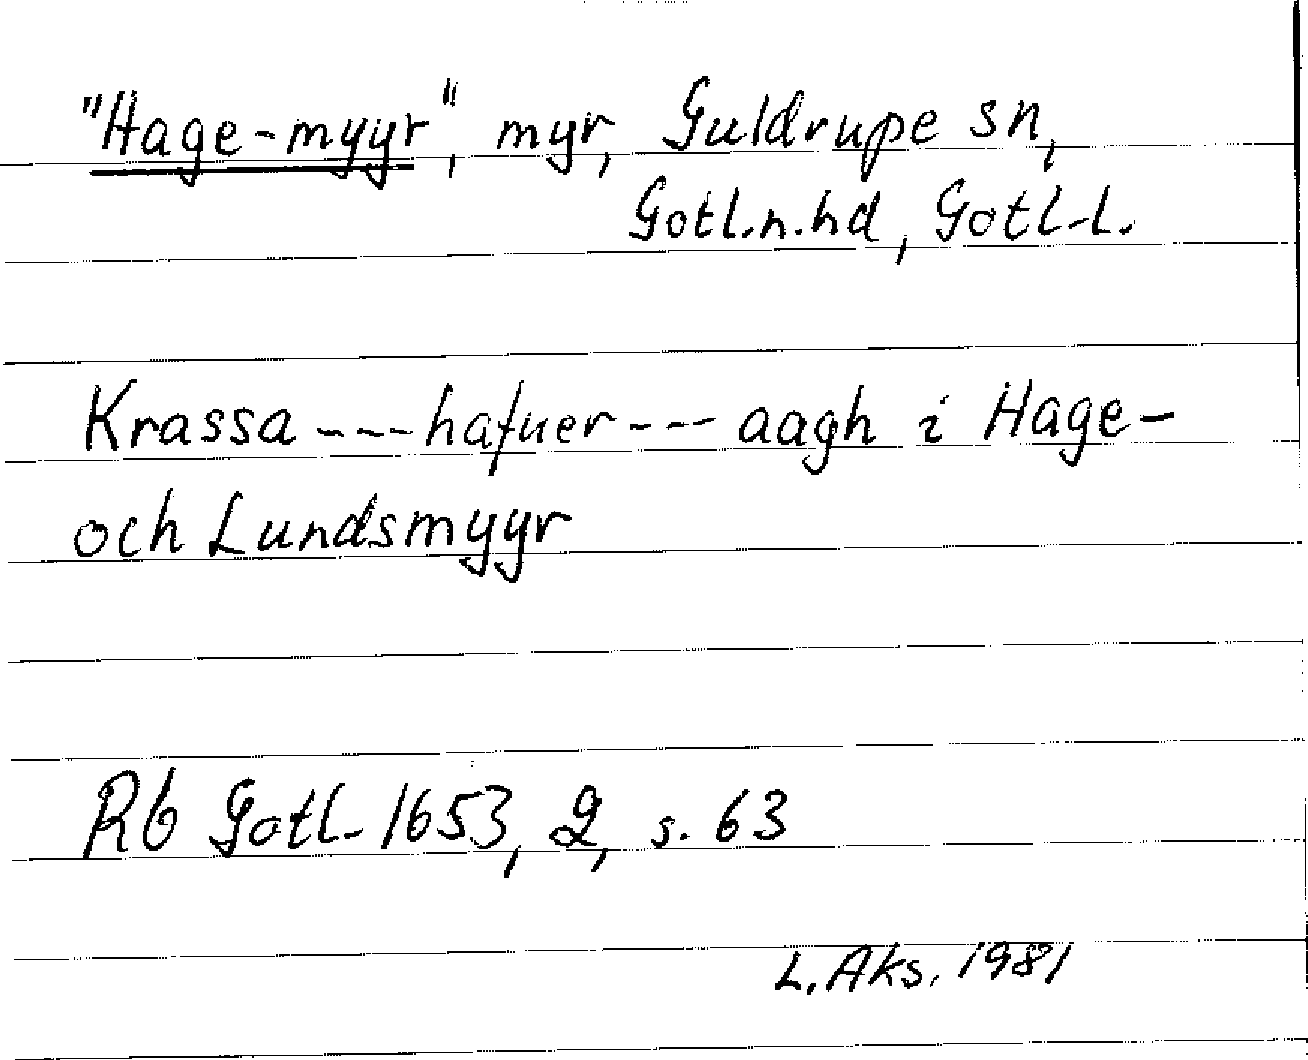 "Hage-myyr", myr, Guldrupe sn,
Gotl.n.hd, Gotl.l.
Krassa --- hafuer --- aagh i Hage-
och Lundsmyyr
Rb Gotl. 1653, 2, s. 63
L. Aks. 1981